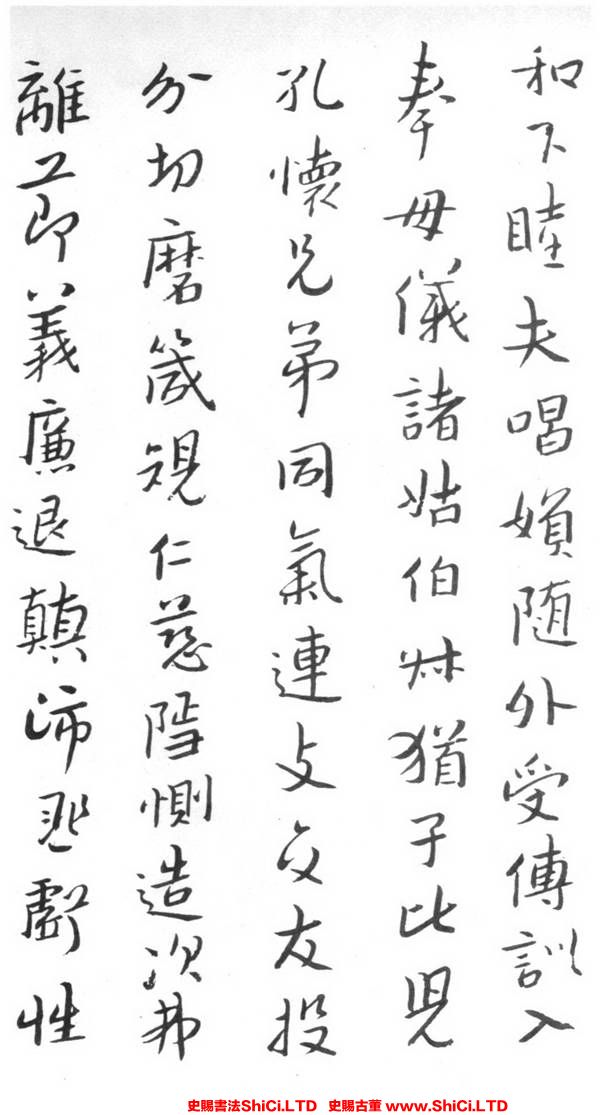 和下睦夫唱婦随外受傅訓入
奉母儀諸姑伯叔猶子比兒
孔懷兄弟同氣連支交友投
分切磨箴規仁慈隱惻造次弗
離節義廉退顛沛匪虧性
史賜書法ShiCi.LTD 史賜古董 www.ShiCi.LTD